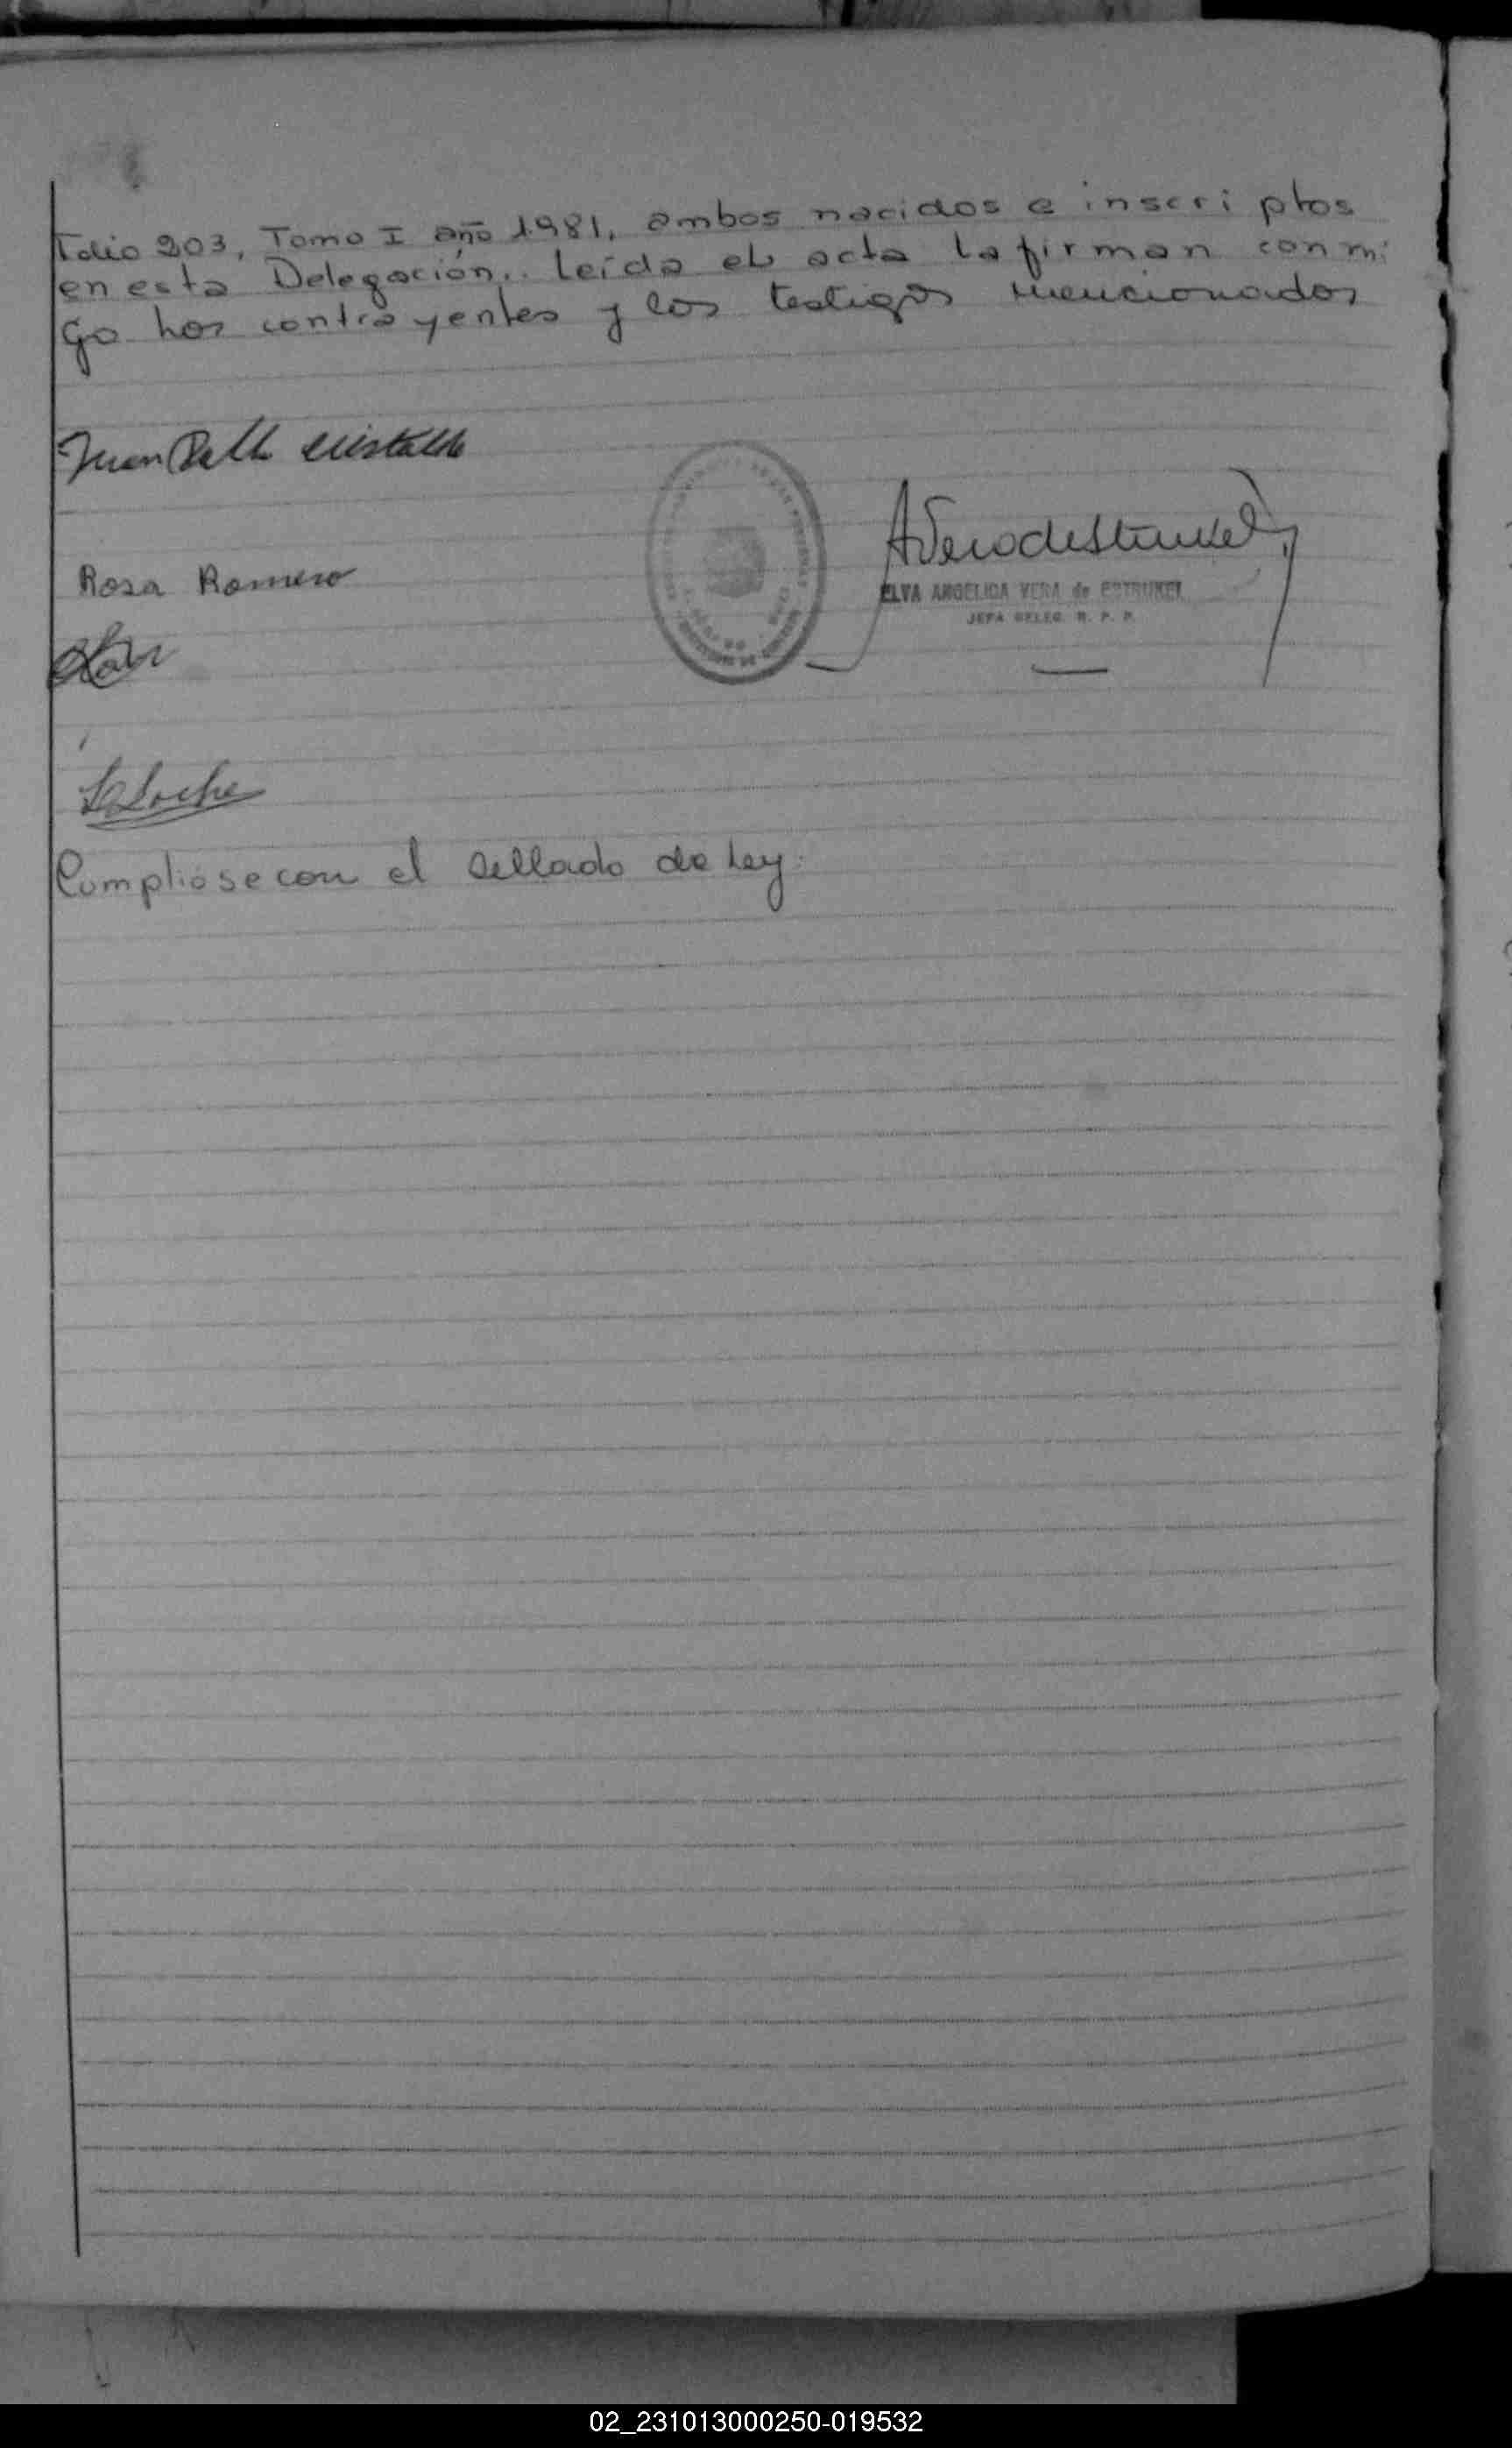 Folio 203, Tomo I año 1.981, ambos nacidos e inscri ptos
en esta Delegación.. Leída el acta la firman con mi
go los contrayentes y los testigos mencionados
Juan
Rosa Romero
AVera de Strunkel
ELVA ANGELICA VERA de ESTRUNKEL
JEFA DELEG. R. P. P.
Cumplióse con el sellado de Ley.
02_231013000250-019532